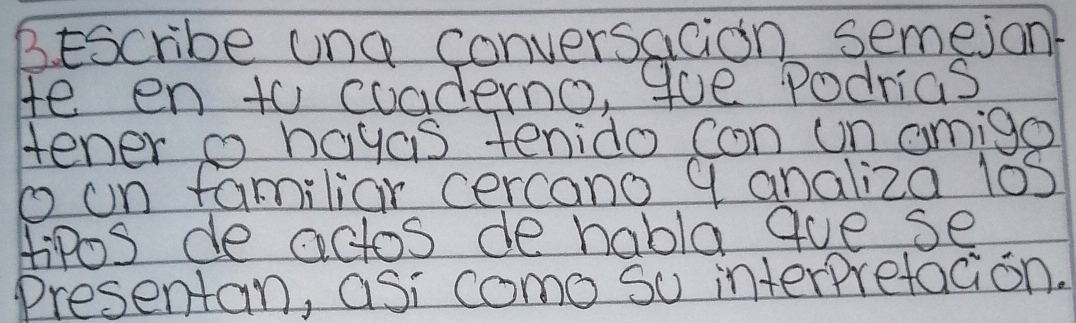 3. Escribe una conversación semejan-
te en tu cuaderno, que Podrías
tener o hayas tenido con un amigo
o un familiar cercano y analiza los
tipos de actos de habla que se
Presentan, así como su interpretación.